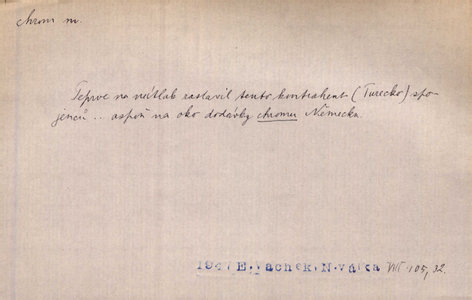 chrom m.
Teprve na nátlak zastavil tento kontrahent (Turecko) spo-
jenců .. aspoň na oko dodávky chromu Německu.
194 E. Vachek, N. válka VII 105, 32.